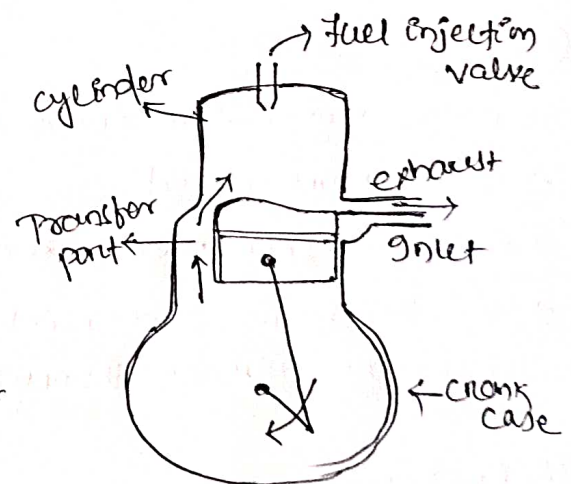 Fuel injection
valve
cylinder
exhaust
Transfer
port
Inlet
Crank
case